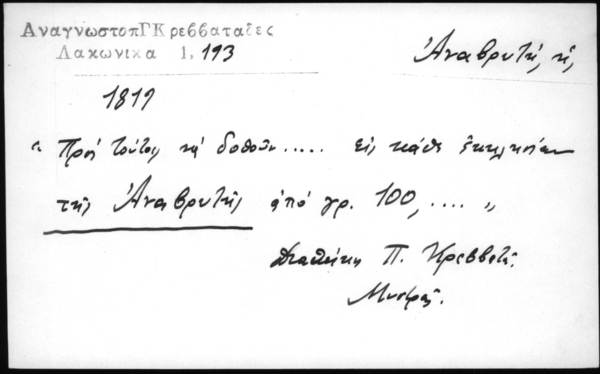 ΑναγνωστοπΓΚρεββαταδες
Λακωνικα 1, 193
Ἀναβρυτή, ἡ,
1819
" Πρὸς τούτοις νὰ δοθοῦν..... εἰς κάθε ἐκκλησίαν
τῆς Ἀναβρυτῆς ἀπὸ γρ. 100, .... "
Διαθήκη Π. Κρεββατᾶ.
Μυστρᾶς.